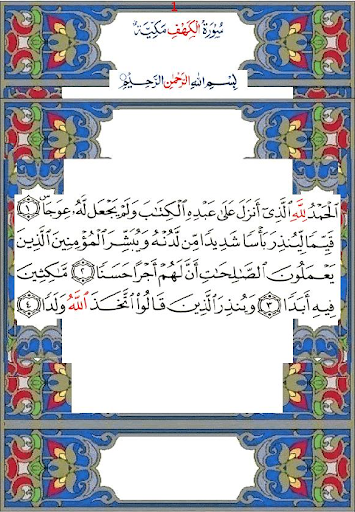 1
سُورَةُ الكَهْفِ مَكِيَّة
بِسْمِ اللهِ الرَّحْمٰنِ الرَّحِيْمِ
الْحَمْدُ لِلّٰهِ الَّذِىٓ أَنْزَلَ عَلىٰ عَبْدِهِ الْكِتٰبَ وَلَمْ يَجْعَلْ لَّهُۥ عِوَجَاۜ ﴿١﴾
قَيِّمًا لِيُنْذِرَ بَأْسًا شَدِيْدًا مِّن لَّدُنْهُ وَيُبَشِّرَ الْمُؤْمِنِيْنَ الَّذِيْنَ
يَعْمَلُوْنَ الصّٰلِحٰتِ أَنَّ لَهُمْ أَجْرًا حَسَنًا ﴿٢﴾ مَّٰكِثِيْنَ
فِيْهِ أَبَدًا ﴿٣﴾ وَيُنْذِرَ الَّذِيْنَ قَالُوا اتَّخَذَ اللّٰهُ وَلَدًا ﴿٤﴾